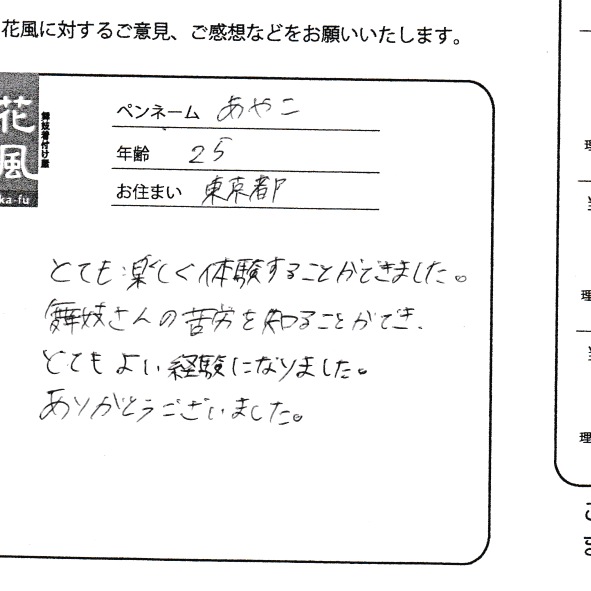 花風に対するご意見、ご感想などをお願いいたします。
花風
舞妓着付け屋
ka-fu
ペンネーム あやこ
年齢 25
お住まい 東京都
とても楽しく体験することができました。
舞妓さんの苦労を知ることができ、
とてもよい経験になりました。
ありがとうございました。
理
理
理